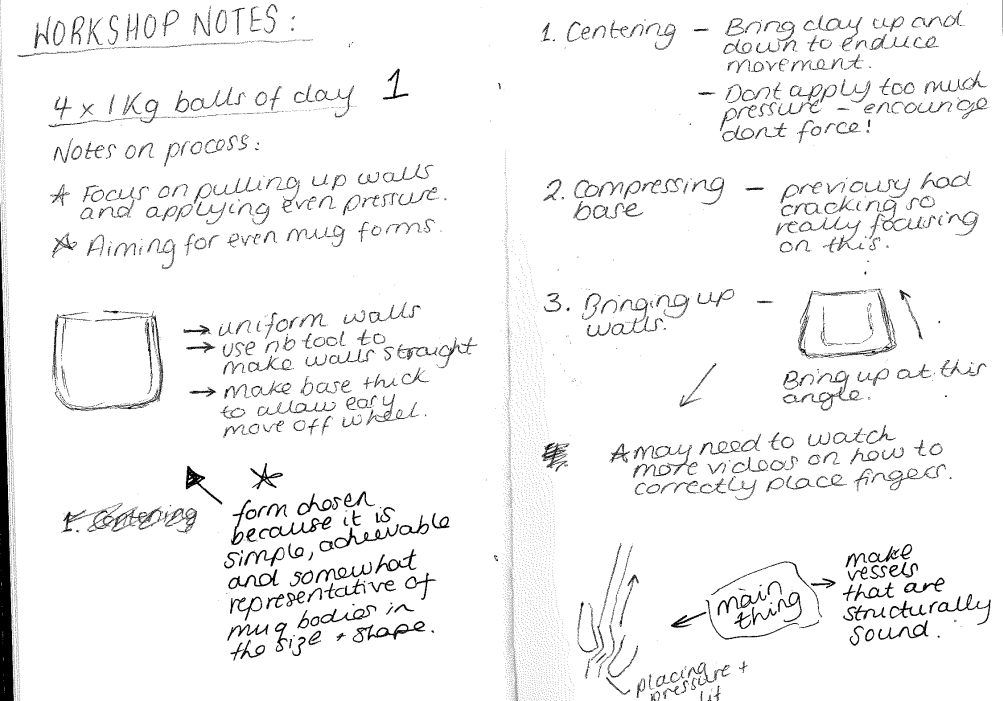 WORKSHOP NOTES:
4 x 1Kg balls of clay 1
Notes on process:
* Focus on pulling up walls
and applying even pressure.
* Aiming for even mug forms.
→ uniform walls
→ use rib tool to
make walls straight
→ make base thick
to allow easy
move off wheel.
1. Centering
* form chosen
because it is
simple, acheevable
and somewhat
representative of
mug bodies in
the size + shape.
1. Centering – Bring clay up and
down to enduce
movement.
– Dont apply too much
pressure – encourage
dont force!
2. Compressing – previousy had
base cracking so
really focusing
on this.
3. Bringing up –
walls.
Bring up at this
angle.
* may need to watch
more videos on how to
correctly place fingers.
main → make
thing vessels
that are
structurally
sound.
placing
pressure +